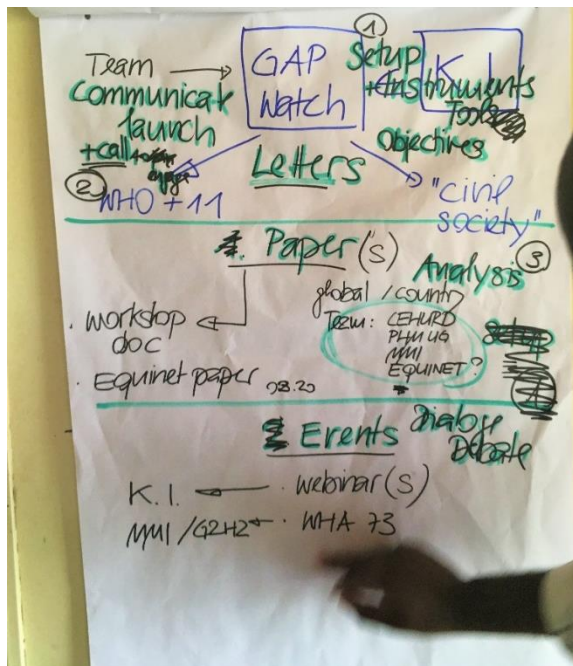 ①
Team → GAP Watch
Setup + Instruments
K I
Tools
Communicate
launch
+ call
Objectives
Letters
② WHO + 11
"civil society"
Paper(s)
③
Analysis
global / country
Team: CEHURD
PHM UG
MMI
EQUINET?
· workshop doc
· Equinet paper 08.20
Events
Dialoge
Debate
K.I. ← · webinar(s)
MMI/G2H2 ← · WHA 73